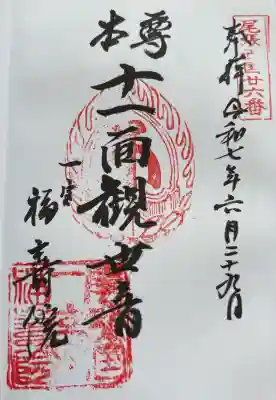 尾張三十三所廿六番
奉拝 令和七年六月二十九日
本尊
十一面観世音
一宮
福寿院